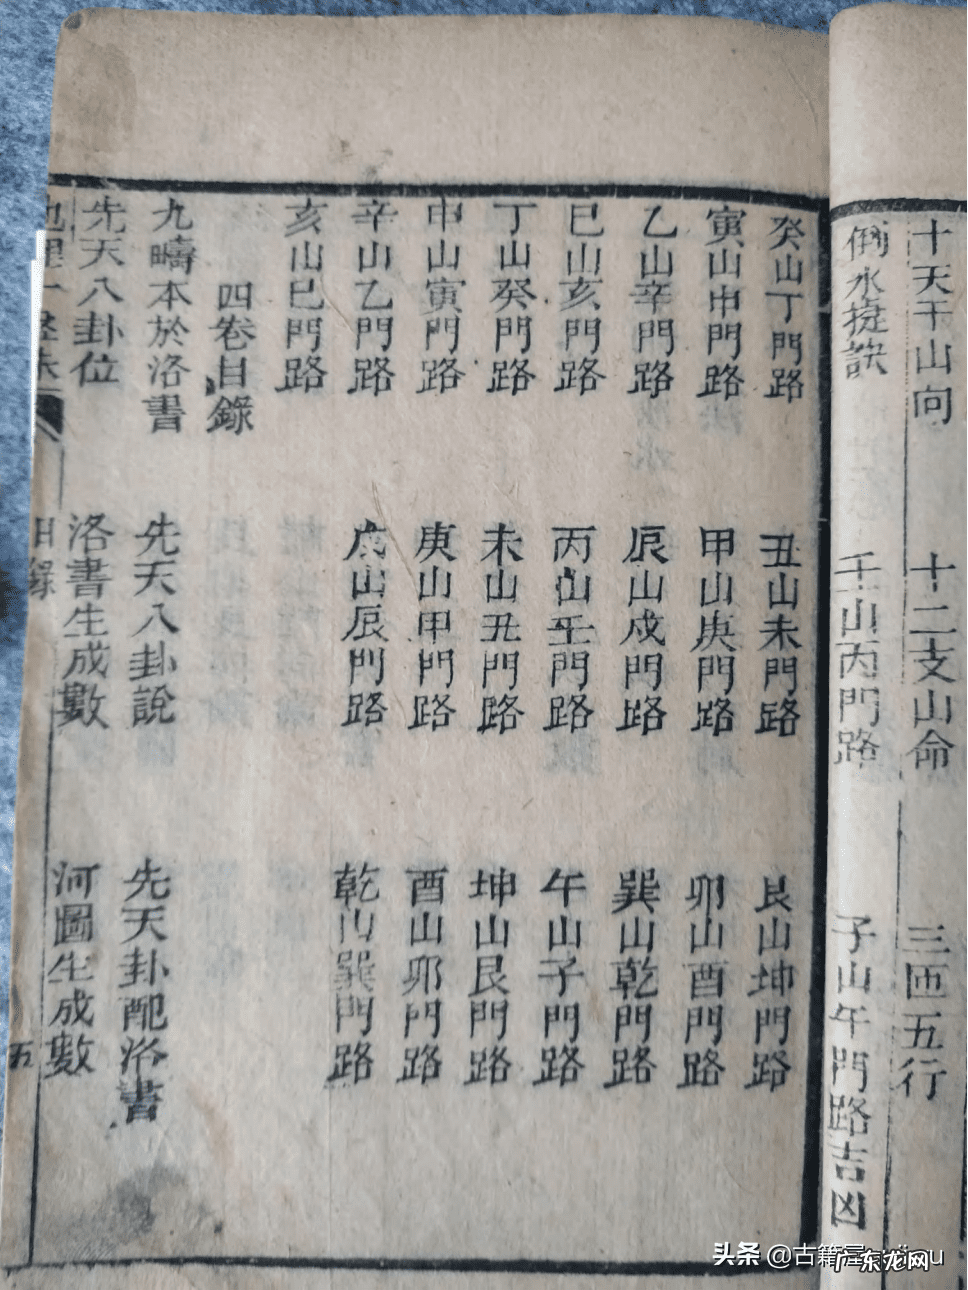 十天干山向　十二支山命　三匝五行
倒水捷訣　壬山丙門路　子山午門路吉凶
癸山丁門路　丑山未門路　艮山坤門路
寅山申門路　甲山庚門路　卯山酉門路
乙山辛門路　辰山戌門路　巽山乾門路
巳山亥門路　丙山壬門路　午山子門路
丁山癸門路　未山丑門路　坤山艮門路
申山寅門路　庚山甲門路　酉山卯門路
辛山乙門路　戌山辰門路　乾山巽門路
亥山巳門路
四卷目錄
九疇本於洛書　先天八卦說　先天卦配洛書
先天八卦位　洛書生成數　河圖生成數
地理　目錄　五
头条 @古籍屋
广东龙网